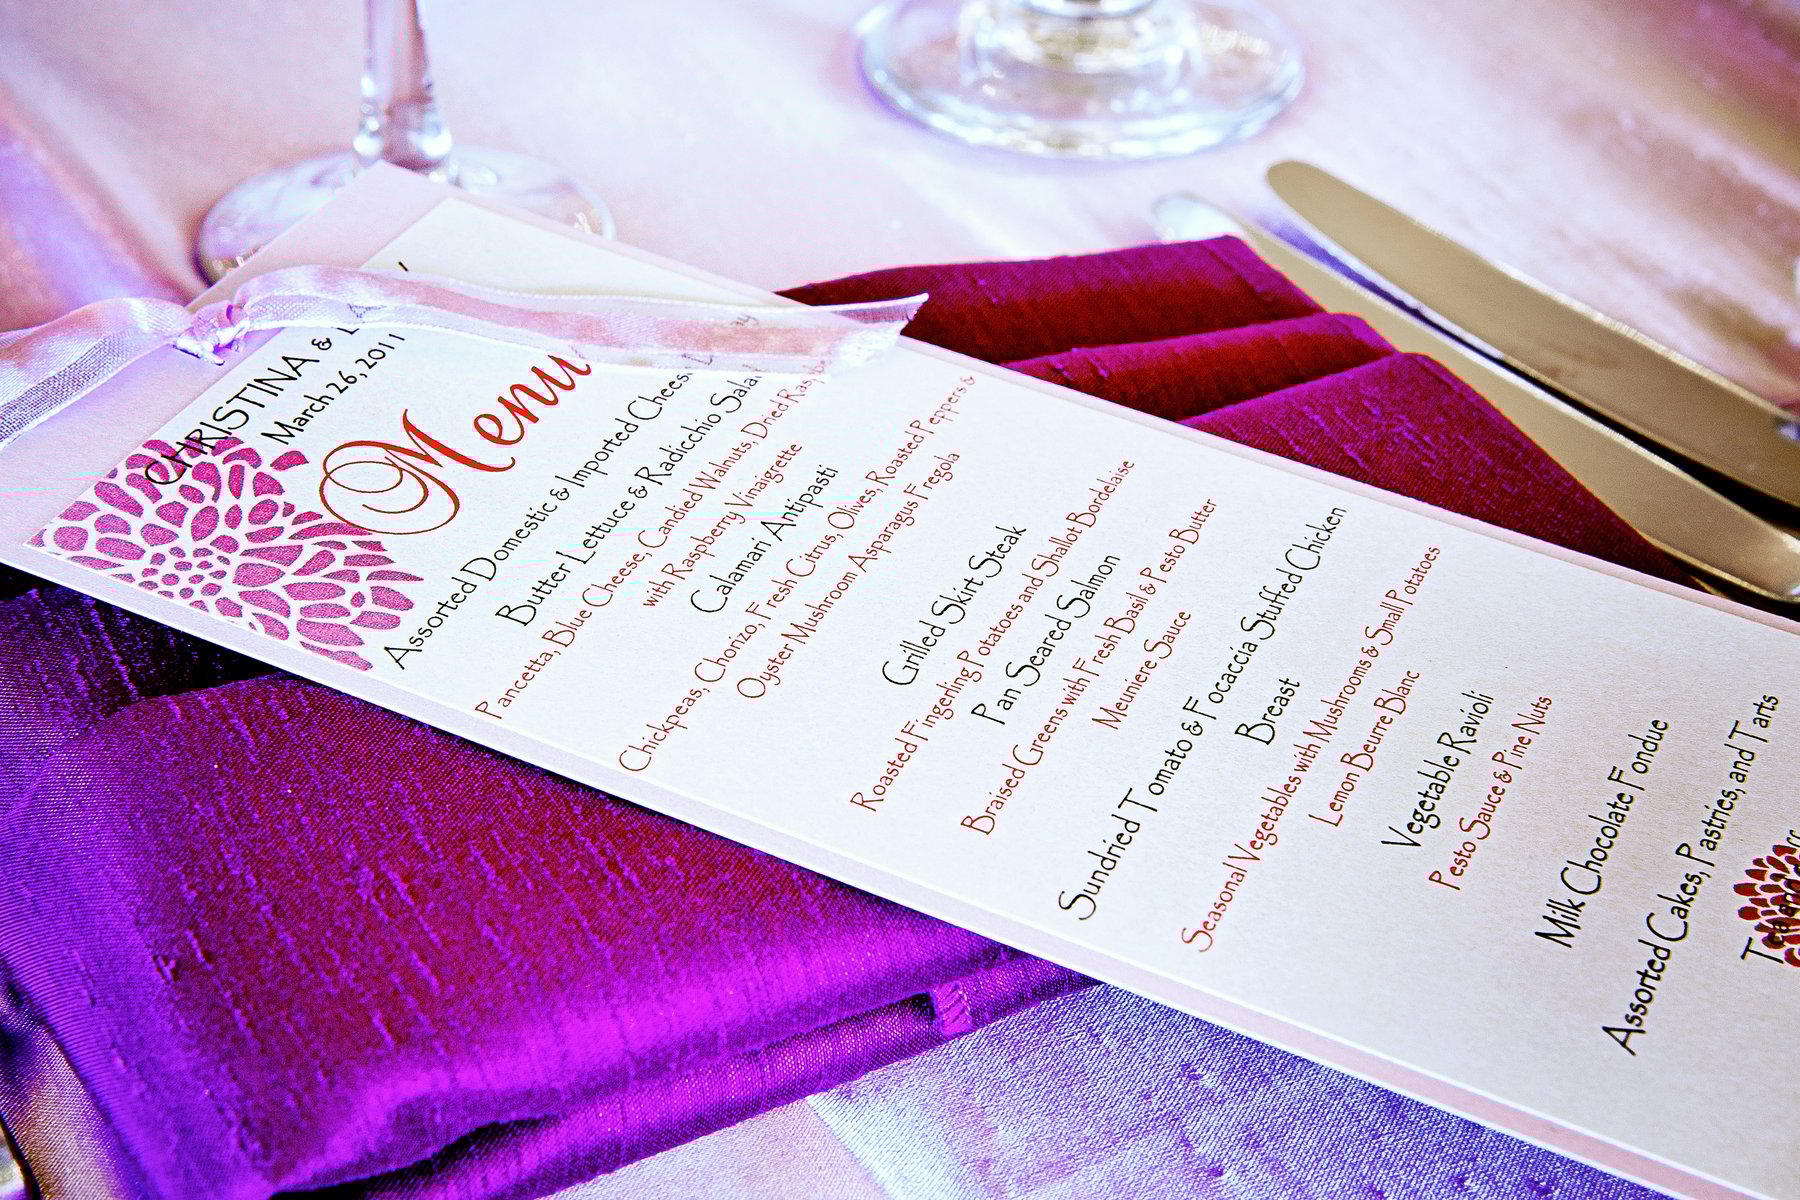 CHRISTINA &
March 26, 2011
Menu
Assorted Domestic & Imported
Butter Lettuce & Radicchio
Pancetta, Blue Cheese, Candied Walnuts, Dried
with Raspberry Vinaigrette
Calamari Antipasti
Chickpeas, Chorizo, Fresh Citrus, Olives, Roasted Peppers &
Oyster Mushroom Asparagus Fregola
Grilled Skirt Steak
Roasted Fingerling Potatoes and Shallot Bordelaise
Pan Seared Salmon
Braised Greens with Fresh Basil & Pesto Butter
Meuniere Sauce
Sundried Tomato & Focaccia Stuffed Chicken
Breast
Seasonal Vegetables with Mushrooms & Small Potatoes
Lemon Beurre Blanc
Vegetable Ravioli
Pesto Sauce & Pine Nuts
Milk Chocolate Fondue
Assorted Cakes, Pastries, and Tarts